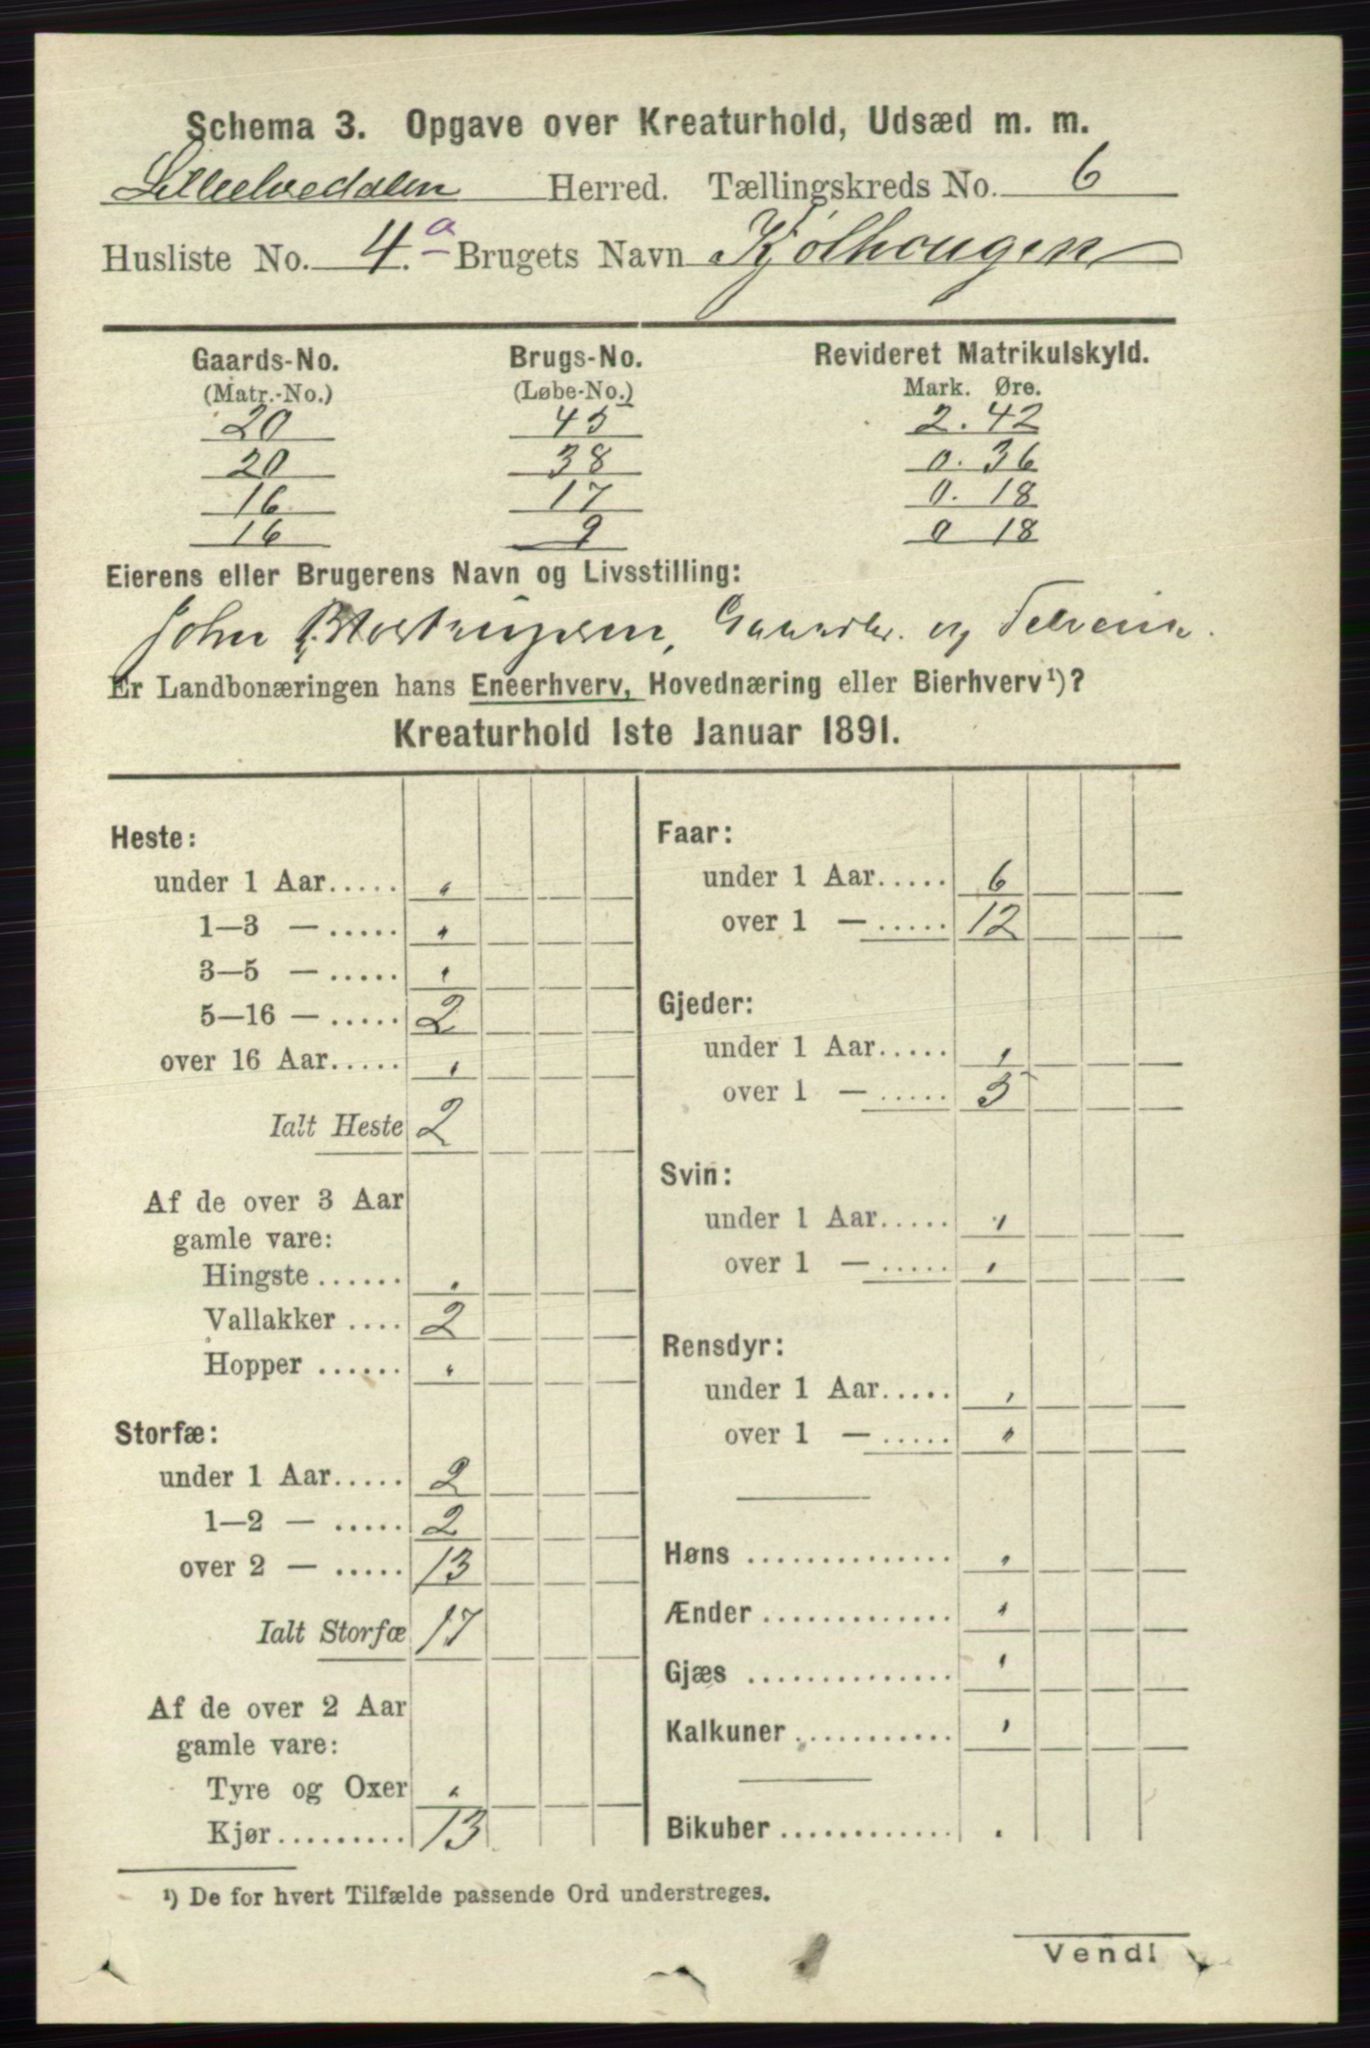 Schema 3. Opgave over Kreaturhold, Udsæd m. m.
Lilleelvedalen Herred. Tællingskreds No. 6
Husliste No. 4.a Brugets Navn Kjølhougen
Gaards-No. Brugs-No. Revideret Matrikulskyld.
(Matr.-No.) (Løbe-No.) Mark. Øre.
20 45 2. 42
20 38 0. 36
16 17 0. 18
16 9 0 18
Eierens eller Brugerens Navn og Livsstilling:
John Gaardbr. og
Er Landbonæringen hans Eneerhverv, Hovednæring eller Bierhverv¹)?
Kreaturhold 1ste Januar 1891.
Heste:
under 1 Aar..... "
1—3 — ..... "
3—5 — ..... "
5—16 — ..... 2
over 16 Aar..... "
Ialt Heste 2
Af de over 3 Aar
gamle vare:
Hingste ...... "
Vallakker .... 2
Hopper ...... "
Storfæ:
under 1 Aar..... 2
1—2 — ..... 2
over 2 — ..... 13
Ialt Storfæ 17
Af de over 2 Aar
gamle vare:
Tyre og Oxer "
Kjør.......... 13
Faar:
under 1 Aar..... 6
over 1 — ..... 12
Gjeder:
under 1 Aar..... "
over 1 — ..... 5
Svin:
under 1 Aar..... "
over 1 — ..... "
Rensdyr:
under 1 Aar..... "
over 1 — ..... "
Høns .............. "
Ænder ............. "
Gjæs .............. "
Kalkuner ........... "
Bikuber ............ "
¹) De for hvert Tilfælde passende Ord understreges.
Vend!